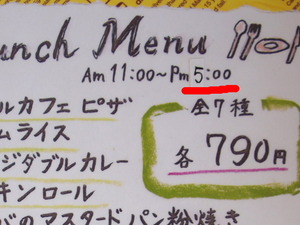 unch Menu
Am 11:00~Pm 5:00
ルカフェ ピザ
ムライス
ジダブル カレー
キンロール
のマスタードパン粉焼き
全7種
各 790円